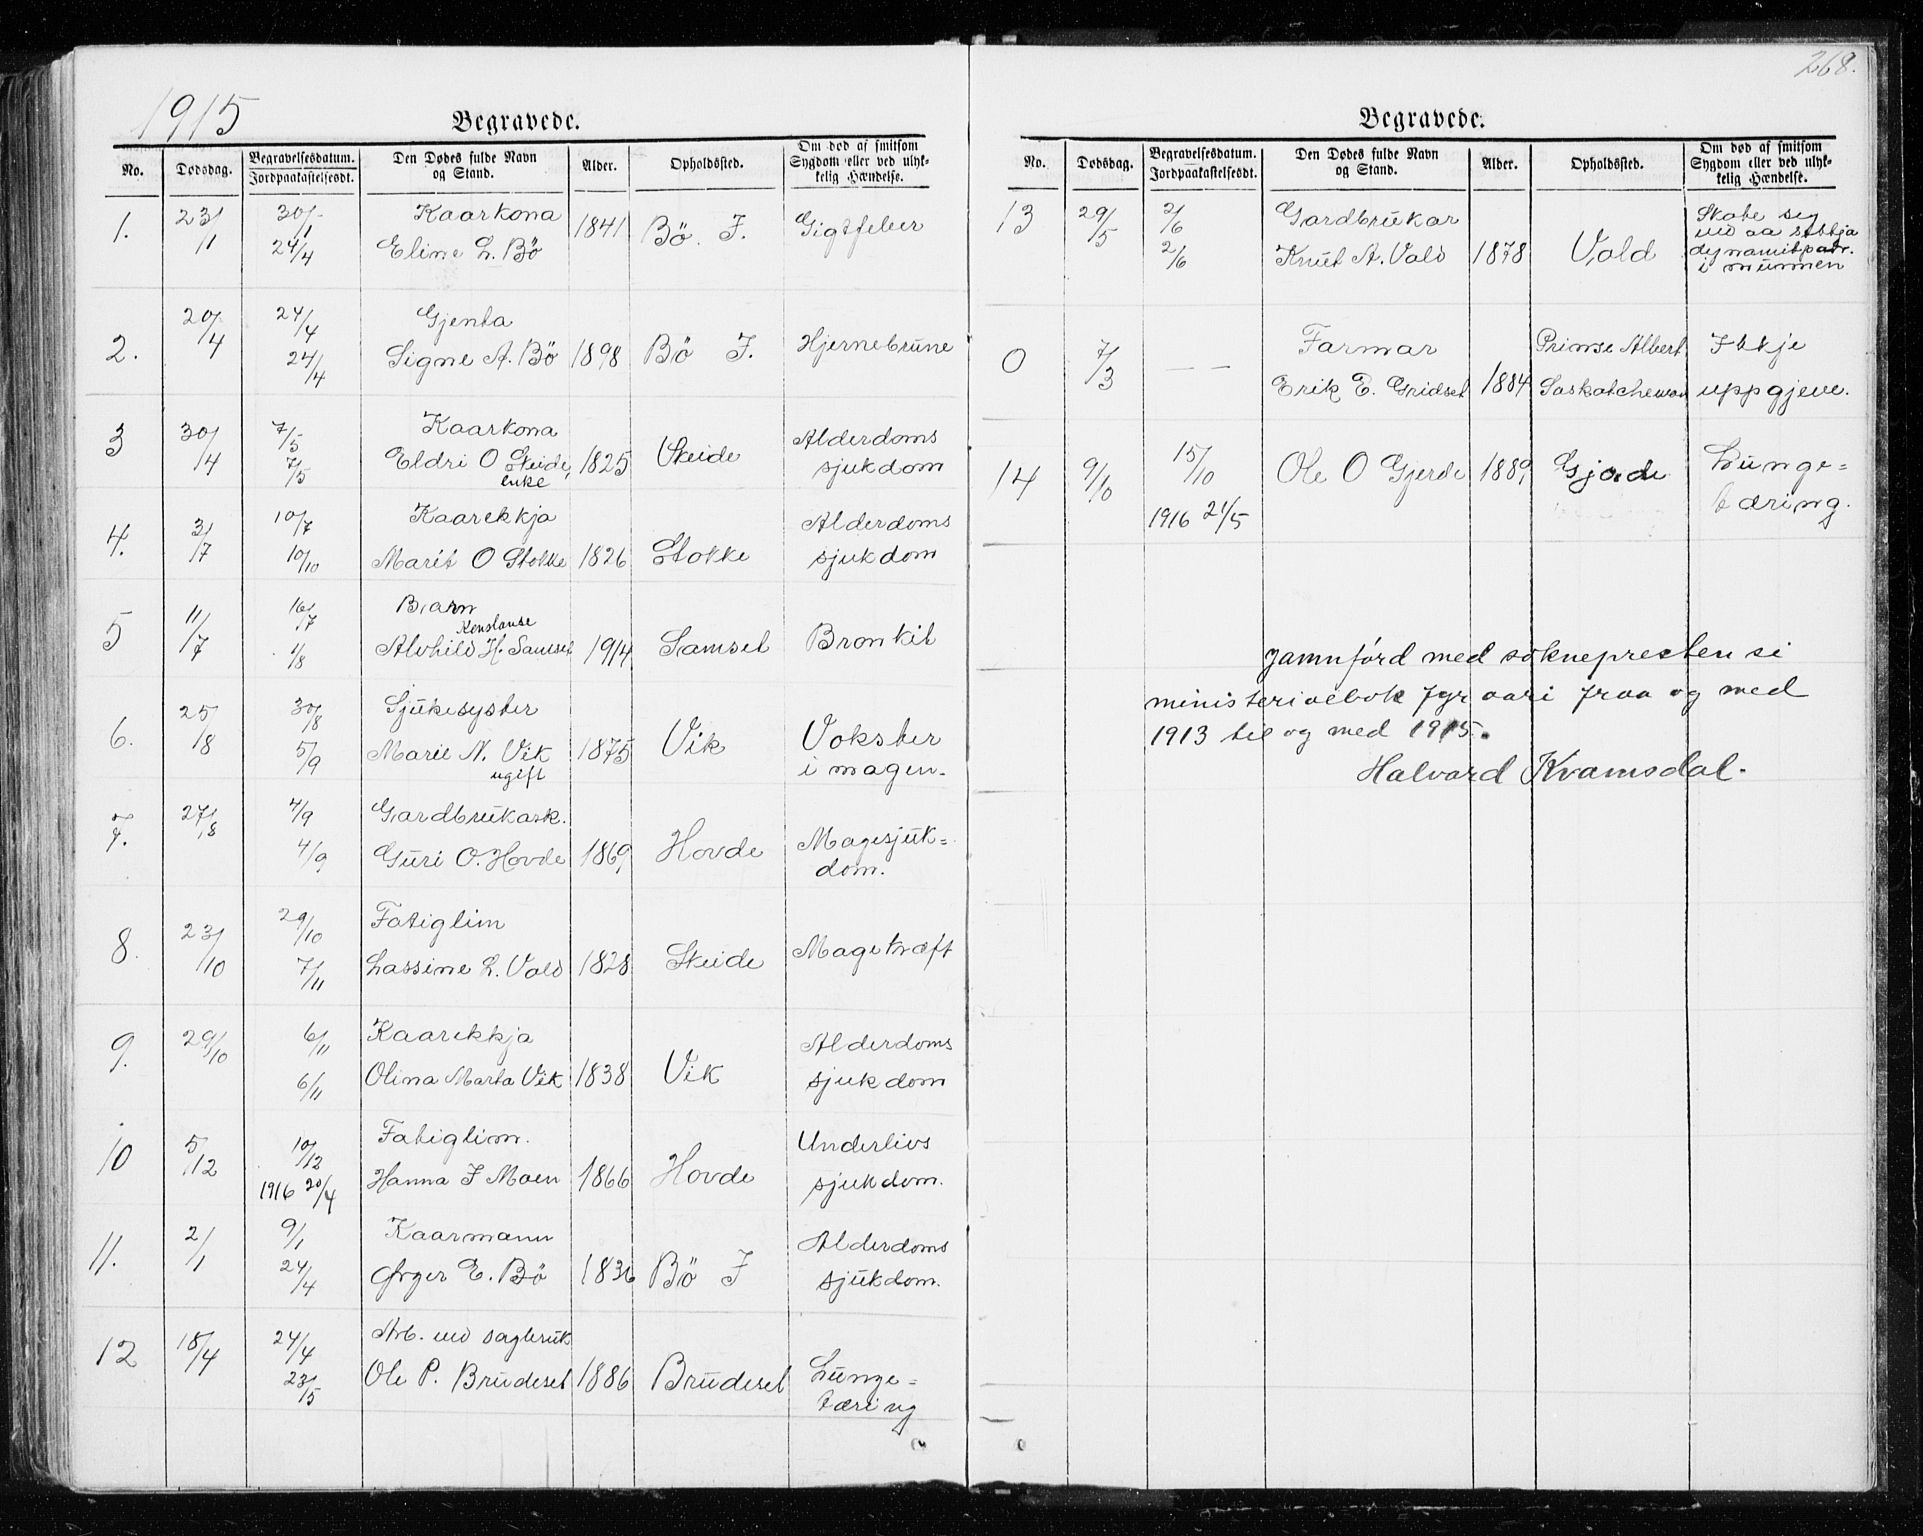 1915
Begravede.
No. Dødsdag. Begravelsesdatum. Jordpaakastelsesdt. Den Dødes fulde Navn og Stand. Alder. Opholdssted. Om død af smitsom Sygdom eller ved ulykkelig Hændelse.
1. 23/1 30/1 Kaarkona
24/4 Eline L. Bö 1841 Bö. J. Gigtfeber
2. 20/4 24/4 Gjenta
24/4 Signe A. Bö 1898 Bö J. Hjernebrune
3 30/4 7/5 Kaarkona Alderdoms
7/5 Eldri O Skeide, 1825 Skeide sjukdom
enke
4. 3/7 10/7 Kaarekkja Alderdoms
10/10 Marit O Stokke 1826 Stokke sjukdom
5 11/7 16/7 Barn
Konstanse
1/8 Alvhild H. Samset 1914 Samset Bronkit
6. 25/8 30/8 Sjukesyster
5/9 Marie N. Vik 1875 Vik Vokster
ugift i magen.
7. 27/8 4/9 Gardbrukark.
4/9 Guri O. Hovde 1869 Hovde Magesjuk=
dom.
8. 23/10 29/10 Fatiglim
7/11 Lassine L. Vald 1828 Skeide Magekræft
9. 29/10 6/11 Kaarekkja Alderdoms
6/11 Olina Marta Vik 1838 Vik sjukdom
10 5/12 10/12 Fatiglim. Underlivs
1916 20/4 Hanna J Moen 1866 Hovde sjukdom.
11. 2/1 9/1 Kaarmann Alderdoms
24/4 Ørger E. Bö 1836 Bö J sjukdom.
12 18/4 24/4 Arb. ved sagbruk
23/5 Ole P. Brudeset 1886 Brudeset Lunge=
tæring
268.
Begravede.
No. Dødsdag. Begravelsesdatum. Jordpaakastelsesdt. Den Dødes fulde Navn og Stand. Alder. Opholdssted. Om død af smitsom Sygdom eller ved ulykkelig Hændelse.
13 29/5 2/6 Gardbrukar Skote seg
ved aa
2/6 Knut A. Vald 1878 Vald dynamitpatr.
i munnen
0 7/3 — — Farmar Prinse Albert Ikkje
Erik E. Gridset 1884 Saskatchewan uppgjeve.
14 9/10 15/10 Ole O Gjerde 1889 Gjerde Lunge=
1916 21/5 tæring.
Jamnförd med soknepresten si
ministerialbok fyr aari fraa og med
1913 til og med 1915.
Halvard Kvamsdal.